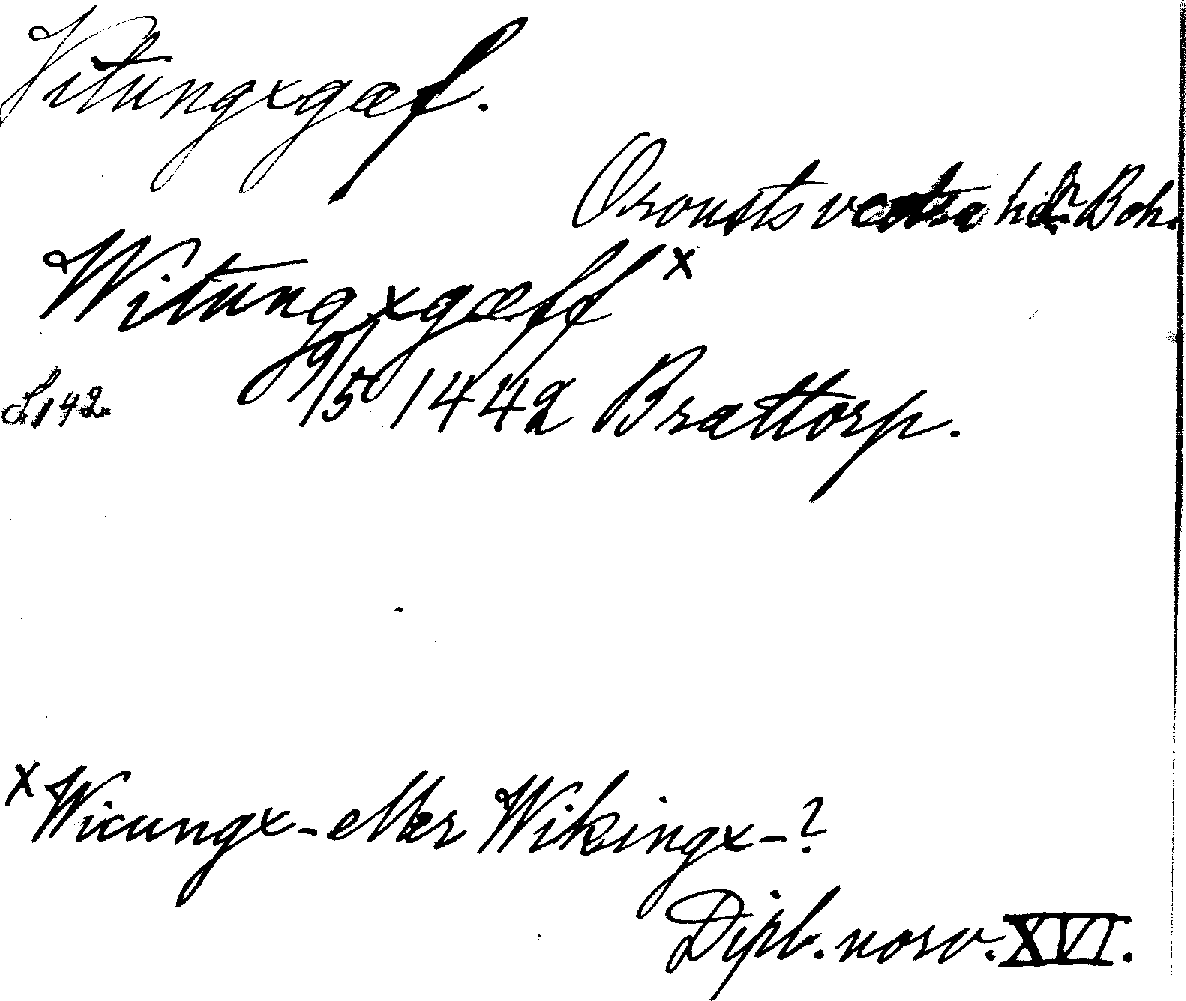 Vitungxgæf.
Orousts vestra hd. Boh.
Witungxgæff x
S. 142. 9/5 1442 Brattorp.
x Wicungx- eller Wikingx-?
Dipl. norv. XVI.